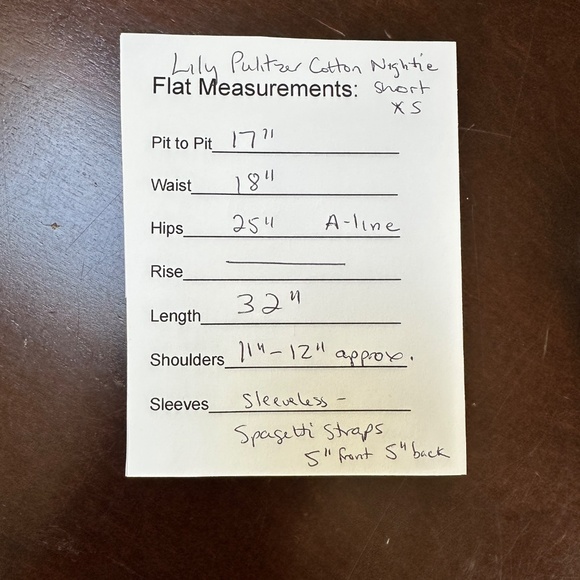 Lily Pulitzer Cotton Nightie
Flat Measurements: short
XS
Pit to Pit 17"
Waist 18"
Hips 25" A-line
Rise
Length 32"
Shoulders 11" - 12" approx.
Sleeves Sleeveless -
Spagetti Straps
5" front 5" back